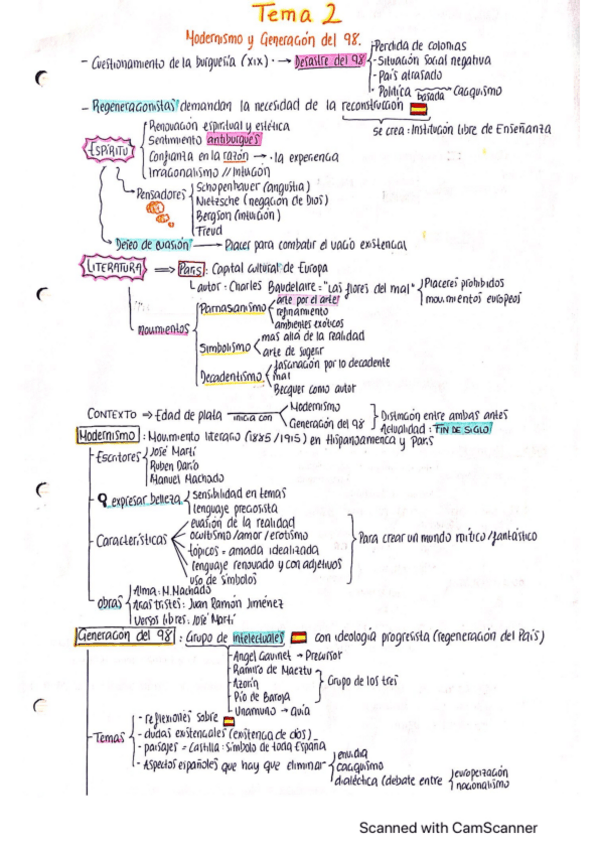 Tema 2
Modernismo y Generación del 98.
- Cuestionamiento de la burguesía (XIX) → Desastre del 98
- Perdida de colonias
- Situación social negativa
- País atrasado
- Política basada Caciquismo
- Regeneracionistas demandan la necesidad de la reconstrucción
se crea: Institución libre de Enseñanza
ESPÍRITU
Renovación espiritual y estética
Sentimiento antiburgués
Confianza en la razón → la experiencia
Irracionalismo // Intuición
Pensadores
Schopenhauer (angustia)
Nietzsche (negación de Dios)
Bergson (intuición)
Freud
Deseo de evasión → Placer para combatir el vacío existencial
LITERATURA ⇒ París: Capital cultural de Europa
autor: Charles Baudelaire = "Las flores del mal"
Placeres prohibidos
movimientos europeos
Movimientos
Parnasanismo
arte por el arte
refinamiento
ambientes exóticos
Simbolismo
mas allá de la realidad
arte de sugerir
Decadentismo
fascinación por lo decadente
mal
Becquer como autor
CONTEXTO ⇒ Edad de plata inicia con
Modernismo
Generación del 98
Distinción entre ambas antes
Actualidad: FIN DE SIGLO
Modernismo: Movimiento literario (1885/1915) en Hispanoamerica y París
Escritores
José Martí
Ruben Darío
Manuel Machado
expresar belleza
sensibilidad en temas
lenguaje preciosista
Características
evasión de la realidad
ocultismo/amor/erotismo
tópicos = amada idealizada
lenguaje renovado y con adjetivos
uso de símbolos
Para crear un mundo mítico/fantástico
obras
Alma: M.Machado
Arias tristes: Juan Ramón Jiménez
Versos libres: José Martí
Generación del 98: Grupo de intelectuales con ideología progresista (regeneración del País)
Angel Gavinet → Precursor
Ramiro de Maeztu
Azorín
Pío de Baroja
Grupo de los tres
Unamuno → guía
Temas
- reflexiones sobre
- dudas existenciales (existencia de dios)
- paisajes = Castilla: símbolo de toda España
- Aspectos españoles que hay que eliminar
envidia
caciquismo
dialéctica (debate entre
europeización
nacionalismo
Scanned with CamScanner